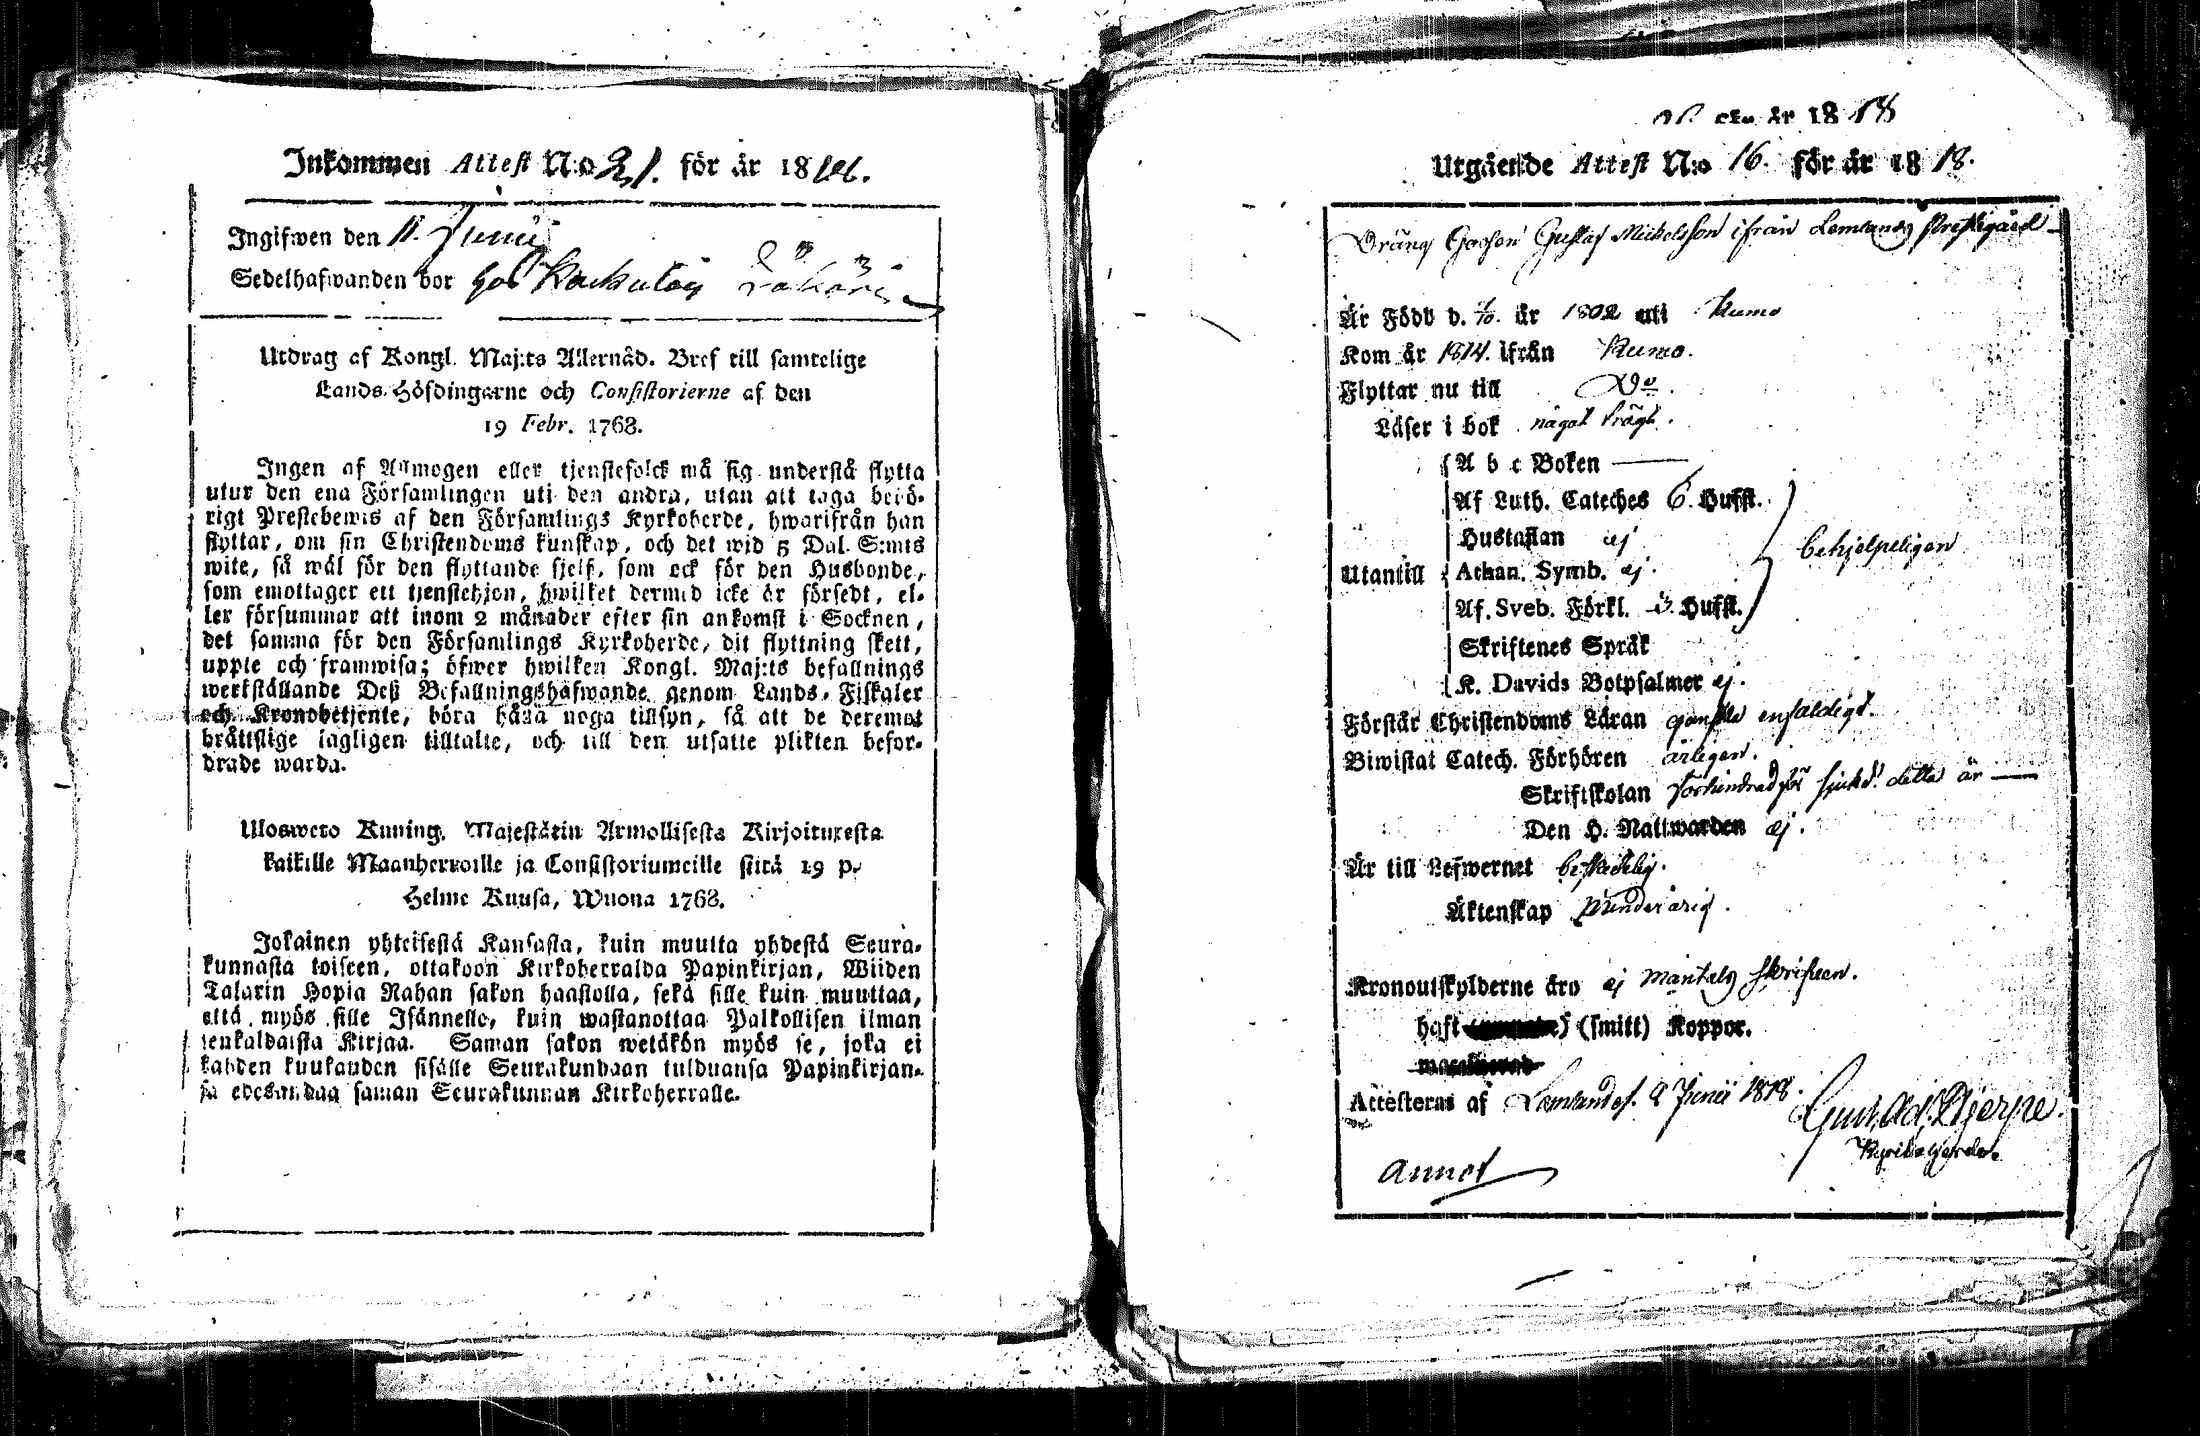 Inkommen Attest N:o 21. för år 18
Ingifwen den 11. Junii
Sedelhafwanden bor hos
Utdrag af Kongl. Maj:ts Allernåd. Bref till samtelige
Lands-Höfdingarne och Consistorierne af den
19 Febr. 1768.
Ingen af Allmogen eller tjenstefolck må sig understå flytta
utur den ena Församlingen uti den andra, utan att taga behö-
rigt Prestebewis af den Församlings Kyrkoherde, hwarifrån han
flyttar, om sin Christendoms kunskap, och det wid 5 Dal. S:mts
wite, så wäl för den flyttande sjelf, som ock för den Husbonde,
som emottager ett tjenstehjon, hwilket dermed icke är försedt, el-
ler försummar att inom 2 månader efter sin ankomst i Socknen,
det samma för den Församlings Kyrkoherde, dit flyttning skett,
uppte och framwisa; öfwer hwilken Kongl. Maj:ts befallnings
werkställande Deß Befallningshafwande genom Lands-Fiskaler
och Kronobetjente, böra hafa noga tillsyn, så att de deremot
bråttslige lagligen tilltalte, och till den utsatte plikten befor-
drade warda.
Ulosweto Kuning. Majestätin Armollisesta Kirjoituxesta
kaikille Maanherroille ja Consistoriumeille siitä 19 p.
Helme Kuusa, Wuona 1768.
Jokainen yhteisestä Kansasta, kuin muutta yhdestä Seura-
kunnasta toiseen, ottakoon Kirkoherralda Papinkirjan, Wiiden
Talarin Hopia Rahan sakon haastolla, sekä sille kuin muuttaa,
että myös sille Isännelle, kuin wastanottaa Palkollisen ilman
senkaldaista Kirjaa. Saman sakon wetäkön myös se, joka ei
kahden kuukauden sisälle Seurakundaan tulduansa Papinkirjan-
sa edesandaa saman Seurakunnan Kirkoherralle.
år 18 18
Utgående Attest N:o 16. för år 18 18.
Dräng Gossen Gustaf Mickelsson ifrån Lemlands Prestegård
Är Född d. år 1802 uti Kumo
Kom år 1814. ifrån Kumo.
Flyttar nu till Do.
Läser i bok något trögt.
A b c Boken
Af Luth. Cateches 6. Hufst.
Hustaflan ej
behjelpeligen
Utantill Athan. Symb. ej.
Af. Sveb. Förkl. Hufst.
Skriftenes Språk
K. Davids Botpsalmer ej.
Förstår Christendoms Läran ganska enfaldigt.
Biwistat Catech. Förhören årlegen.
Skriftskolan förhindrad för sjukd. detta år
Den H. Nattwarden ej.
Är till Lefwernet beskedelig.
Äktenskap Minderårig.
Kronoutskylderne äro ej mantals skrifven.
haft (smitt) Koppor.
Attesteras af Lemland d. 2 Junii 1818.
Kyrkoherde.
annot